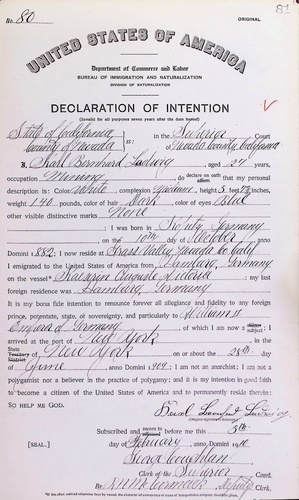 81
No. 80
ORIGINAL
UNITED STATES OF AMERICA
Department of Commerce and Labor
BUREAU OF IMMIGRATION AND NATURALIZATION
DIVISION OF NATURALIZATION
DECLARATION OF INTENTION
(Invalid for all purposes seven years after the date hereof)
State of California, ss: In the Superior Court
County of Nevada Nevada County California
I, Karl Bernhard Ludwig, aged 27 years,
occupation Mining, do declare on oath affirm that my personal
description is: Color White, complexion Medium, height 5 feet inches,
weight 140 pounds, color of hair Dark, color of eyes Blue
other visible distinctive marks None
I was born in Germany
on the 10th day of October, anno
Domini 1882; I now reside at Grass Valley Nevada Co Cal
I emigrated to the United States of America from Hamburg, Germany
on the vessel Kaiserin Auguste Victoria; my last
foreign residence was Hamburg Germany
It is my bona fide intention to renounce forever all allegiance and fidelity to any foreign
prince, potentate, state, or sovereignty, and particularly to William II
Emperor of Germany, of which I am now a citizen subject; I
arrived at the port of New York, in the
State Territory District of New York on or about the 28th day
of June, anno Domini 1909; I am not an anarchist; I am not a
polygamist nor a believer in the practice of polygamy; and it is my intention in good faith
to become a citizen of the United States of America and to permanently reside therein:
SO HELP ME GOD.
Karl Bernhard Ludwig
(Original signature of declarant)
Subscribed and sworn to before me this 5th
[SEAL.] day of February, anno Domini 1910
George Coughlan
Clerk of the Superior Court.
By Deputy Clerk.